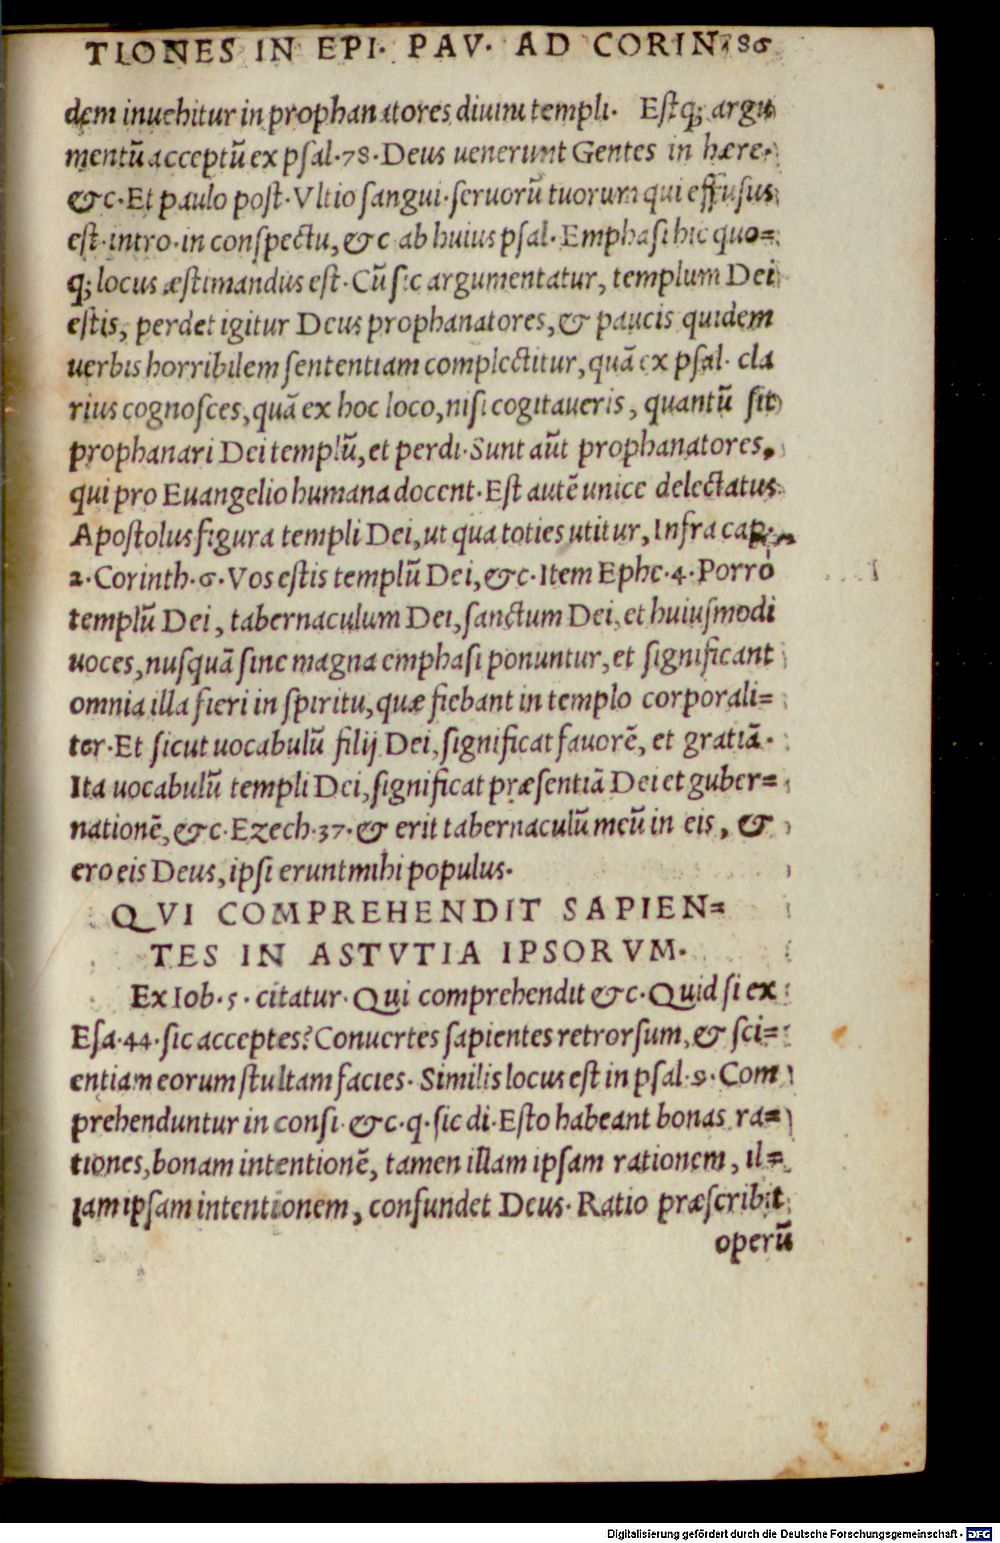 TIONES IN EPI. PAV. AD CORIN. 86
dem inuehitur in prophanatores diuini templi. Estq; argu
mentũ acceptũ ex psal. 78. Deus uenerunt Gentes in hære.
&c. Et paulo post. Vltio sangui. seruorũ tuorum qui effusus
est. intro. in conspectu, &c ab huius psal. Emphasi hic quo=
q; locus æstimandus est. Cũ sic argumentatur, templum Dei
estis, perdet igitur Deus prophanatores, & paucis quidem
uerbis horribilem sententiam complectitur, quã ex psal. cla
rius cognosces, quã ex hoc loco, nisi cogitaueris, quantũ sit
prophanari Dei templũ, et perdi. Sunt aũt prophanatores,
qui pro Euangelio humana docent. Est autẽ unice delectatus
Apostolus figura templi Dei, ut qua toties utitur, Infra cap.
2. Corinth. 6. Vos estis templũ Dei, &c. Item Ephe. 4. Porro
templũ Dei, tabernaculum Dei, sanctum Dei, et huiusmodi
uoces, nusquã sine magna emphasi ponuntur, et significant
omnia illa fieri in spiritu, quæ fiebant in templo corporali=
ter. Et sicut uocabulũ filij Dei, significat fauorẽ, et gratiã.
Ita uocabulũ templi Dei, significat præsentiã Dei et guber=
nationẽ, &c. Ezech. 37. & erit tabernaculũ meũ in eis, &
ero eis Deus, ipsi erunt mihi populus.
QVI COMPREHENDIT SAPIEN=
TES IN ASTVTIA IPSORVM.
Ex Iob. 5. citatur. Qui comprehendit &c. Quid si ex
Esa. 44. sic acceptes? Conuertes sapientes retrorsum, & sci=
entiam eorum stultam facies. Similis locus est in psal. 9. Com
prehenduntur in consi. &c. q. sic di. Esto habeant bonas ra=
tiones, bonam intentionẽ, tamen illam ipsam rationem, il=
lam ipsam intentionem, confundet Deus. Ratio præscribit
operũ
Digitalisierung gefördert durch die Deutsche Forschungsgemeinschaft - DFG